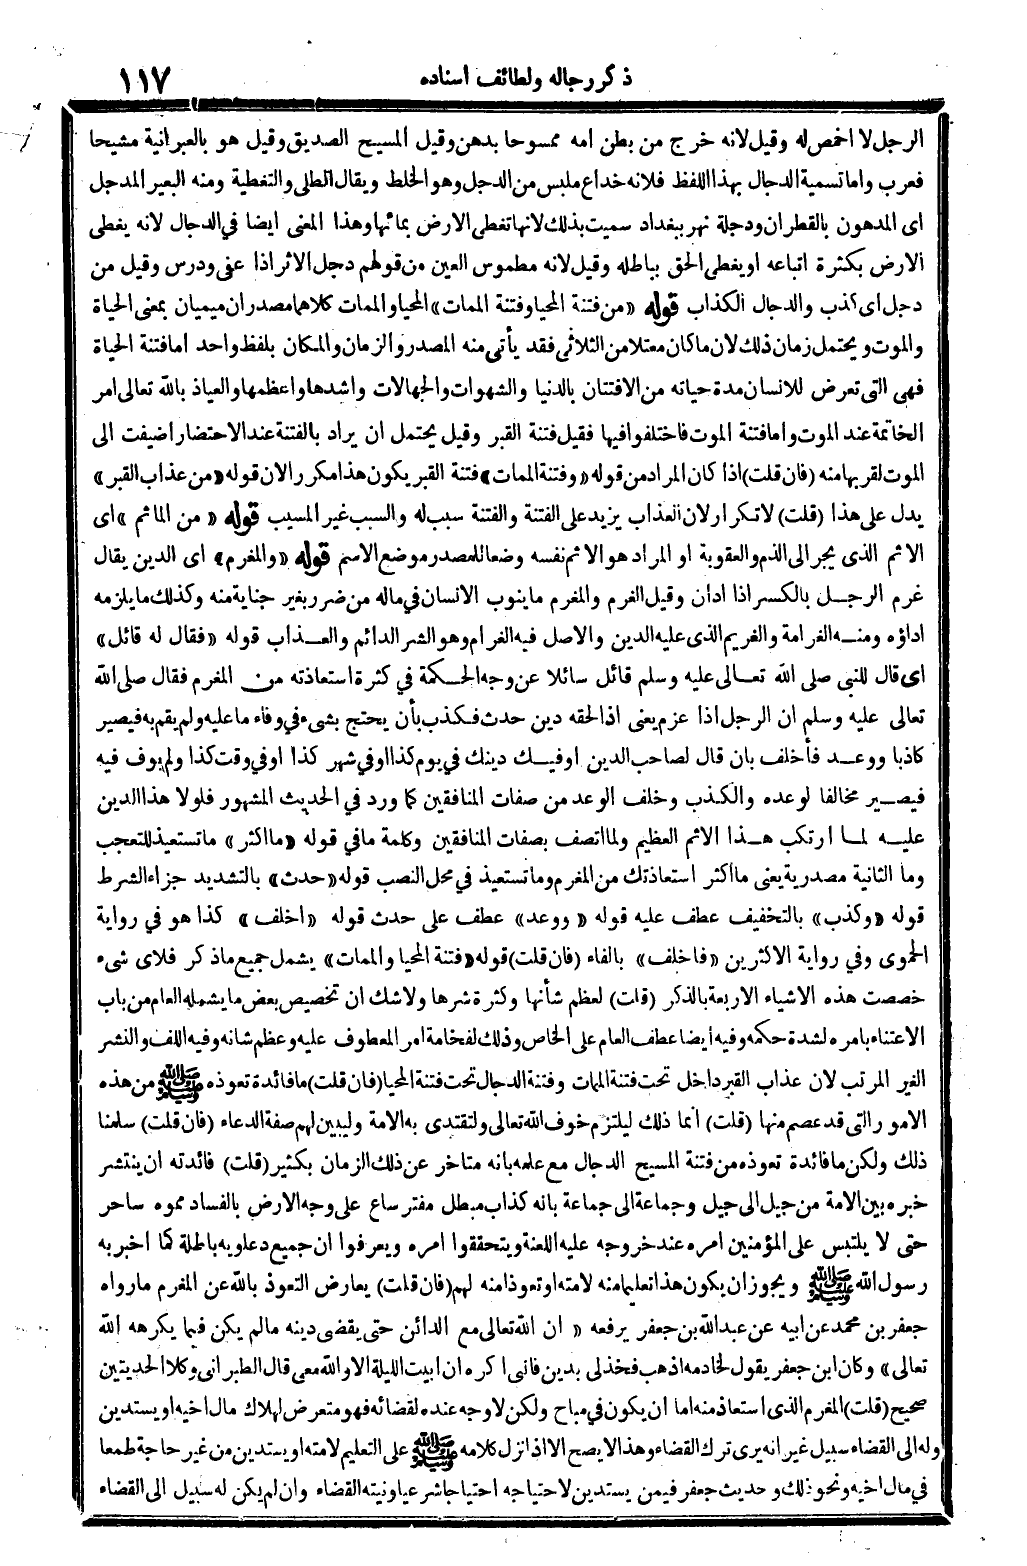 ذكر رجاله ولطائف اسناده ١١٧
الرجل لا اخمص له وقيل لانه خرج من بطن امه ممسوحا بدهن وقيل المسيح الصديق وقيل هو بالعبرانية مشيحا
فعرب واما تسمية الدجال بهذا اللفظ فلانه خداع ملبس من الدجل وهو الخلط ويقال الطلى والتغطية ومنه البعير المدجل
اى المدهون بالقطران ودجلة نهر ببغداد سميت بذلك لانها تغطى الارض بمائها وهذا المعنى ايضا في الدجال لانه يغطى
الارض بكثرة اتباعه اويغطى الحق بباطله وقيل لانه مطموس العين من قولهم دجل الاثر اذا عفى ودرس وقيل من
دجل اى كذب والدجال الكذاب قوله «من فتنة المحيا وفتنة الممات» المحيا والممات كلاهما مصدران ميميان بمعنى الحياة
والموت ويحتمل زمان ذلك لان ما كان معتلا من الثلاثى فقد يأتى منه المصدر والزمان والمكان بلفظ واحد اما فتنة الحياة
فهى التى تعرض للانسان مدة حياته من الافتتان بالدنيا والشهوات والجهالات واشدها واعظمها والعياذ بالله تعالى امر
الخاتمة عند الموت واما فتنة الموت فاختلفوا فيها فقيل فتنة القبر وقيل يحتمل ان يراد بالفتنة عند الاحتضار اضيفت الى
الموت لقربها منه (فان قلت) اذا كان المراد من قوله «وفتنة الممات» فتنة القبر يكون هذا مكررا لان قوله «من عذاب القبر»
يدل على هذا (قلت) لا تكرار لان العذاب يزيد على الفتنة والفتنة سبب له والسبب غير المسبب قوله «من المأثم» اى
الاثم الذى يجر الى الذم والعقوبة او المراد هو الاثم نفسه وضعا للمصدر موضع الاسم قوله «والمغرم» اى الدين يقال
غرم الرجل بالكسر اذا ادان وقيل الغرم والمغرم ما ينوب الانسان في ماله من ضرر بغير جناية منه وكذلك ما يلزمه
اداؤه ومنه الغرامة والغريم الذى عليه الدين والاصل فيه الغرام وهو الشر الدائم والعذاب قوله «فقال له قائل»
اى قال للنبى صلى الله تعالى عليه وسلم قائل سائلا عن وجه الحكمة في كثرة استعاذته من المغرم فقال صلى الله
تعالى عليه وسلم ان الرجل اذا غرم يعنى اذا لحقه دين حدث فكذب بأن يحتج بشىء في وفاء ما عليه ولم يقم به فيصير
كاذبا ووعد فأخلف بان قال لصاحب الدين اوفيك دينك في يوم كذا اوفي شهر كذا اوفي وقت كذا ولم يوف فيه
فيصير مخالفا لوعده والكذب وخلف الوعد من صفات المنافقين كما ورد في الحديث المشهور فلولا هذا الدين
عليه لما ارتكب هذا الاثم العظيم ولما اتصف بصفات المنافقين وكلمة ما في قوله «ما اكثر» ما تستعيذ للتعجب
وما الثانية مصدرية يعنى ما أكثر استعاذتك من المغرم وما تستعيذ في محل النصب قوله «حدث» بالتشديد جزاء الشرط
قوله «وكذب» بالتخفيف عطف عليه قوله «ووعد» عطف على حدث قوله «اخلف» كذا هو في رواية
الحموى وفي رواية الاكثرين «فاخلف» بالفاء (فان قلت) قوله «فتنة المحيا والممات» يشمل جميع ما ذكر فلاى شىء
خصصت هذه الاشياء الاربعة بالذكر (قلت) لعظم شأنها وكثرة شرها ولا شك ان تخصيص بعض ما يشمله العام من باب
الاعتناء بامره لشدة حكمه وفيه أيضا عطف العام على الخاص وذلك لفخامة امر المعطوف عليه وعظم شانه وفيه اللف والنشر
الغير المرتب لان عذاب القبر داخل تحت فتنة الممات وفتنة الدجال تحت فتنة المحيا (فان قلت) ما فائدة تعوذه ﷺ من هذه
الامور التى قد عصم منها (قلت) انما ذلك ليلتزم خوف الله تعالى ولتقتدى به الامة وليبين لهم صفة الدعاء (فان قلت) سلمنا
ذلك ولكن ما فائدة تعوذه من فتنة المسيح الدجال مع علمه بانه متاخر عن ذلك الزمان بكثير (قلت) فائدته ان ينتشر
خبره بين الامة من جيل الى جيل وجماعة الى جماعة بانه كذاب مبطل مفتر ساع على وجه الارض بالفساد مموه ساحر
حتى لا يلتبس على المؤمنين امره عند خروجه عليه اللعنة ويتحققوا امره ويعرفوا ان جميع دعاويه باطلة كما اخبر به
رسول الله ﷺ ويجوز ان يكون هذا تعليما منه لامته او تعوذا منه لهم (فان قلت) يعارض التعوذ بالله عن المغرم ما رواه
جعفر بن محمد عن ابيه عن عبد الله بن جعفر يرفعه «ان الله تعالى مع الدائن حتى يقضى دينه ما لم يكن فيما يكرهه الله
تعالى» وكان ابن جعفر يقول لخادمه اذهب فخذ لى بدين فانى اكره ان ابيت الليلة الا والله معى قال الطبرانى وكلا الحديثين
صحيح (قلت) المغرم الذى استعاذ منه اما ان يكون في مباح ولكن لا وجه عنده لقضائه فهو متعرض لهلاك مال اخيه او يستدين
وله الى القضاء سبيل غير انه يرى ترك القضاء وهذا لا يصح الا اذا نزل كلامه ﷺ على التعليم لامته او يستدين من غير حاجة طمعا
في مال اخيه ونحو ذلك وحديث جعفر فيمن يستدين لاحتياجه احتياجا شرعيا ونيته القضاء وان لم يكن له سبيل الى القضاء